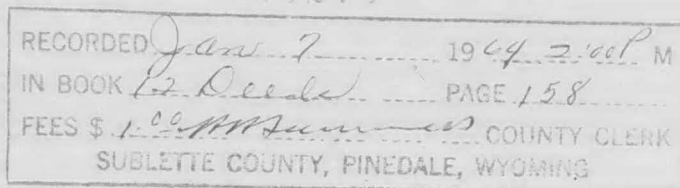 RECORDED Jan 7 1964 2:00 P M
IN BOOK 12 Deeds PAGE 158
FEES $ 1.00 COUNTY CLERK
SUBLETTE COUNTY, PINEDALE, WYOMING